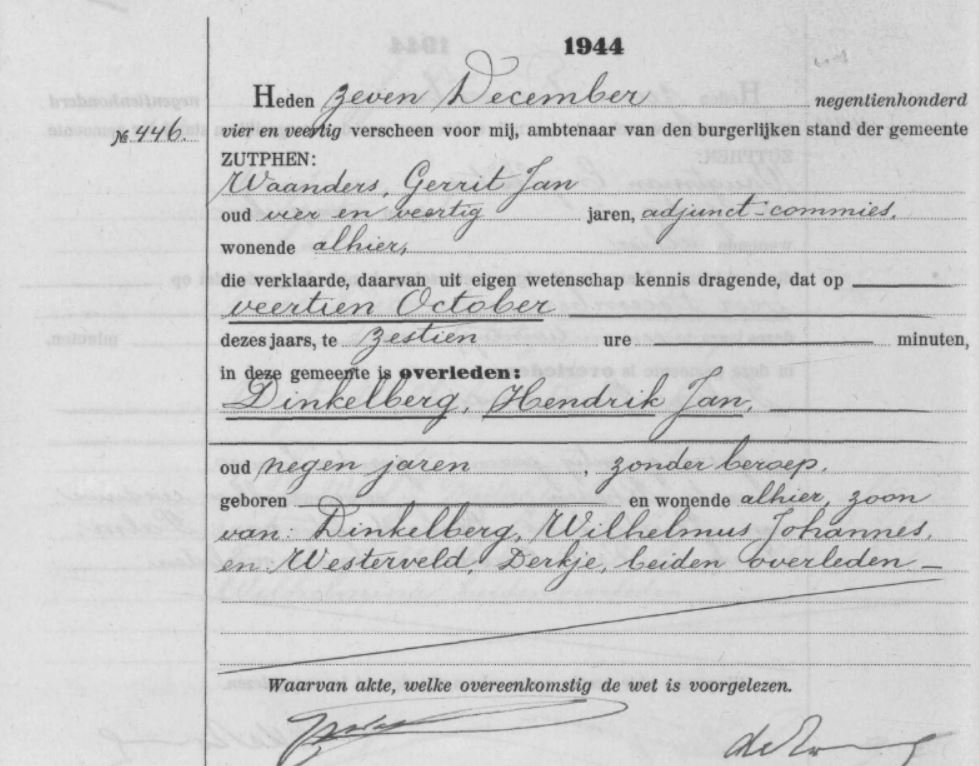 1944
Heden zeven December negentienhonderd
№ 446. vier en veertig verscheen voor mij, ambtenaar van den burgerlijken stand der gemeente
ZUTPHEN:
Waanders, Gerrit Jan
oud vier en veertig jaren, adjunct-commies,
wonende alhier,
die verklaarde, daarvan uit eigen wetenschap kennis dragende, dat op
veertien October
dezes jaars, te zestien ure minuten,
in deze gemeente is overleden:
Dinkelberg, Hendrik Jan,
oud negen jaren, zonder beroep,
geboren en wonende alhier, zoon
van: Dinkelberg, Wilhelmus Johannes,
en Westerveld, Derkje, beiden overleden
Waarvan akte, welke overeenkomstig de wet is voorgelezen.